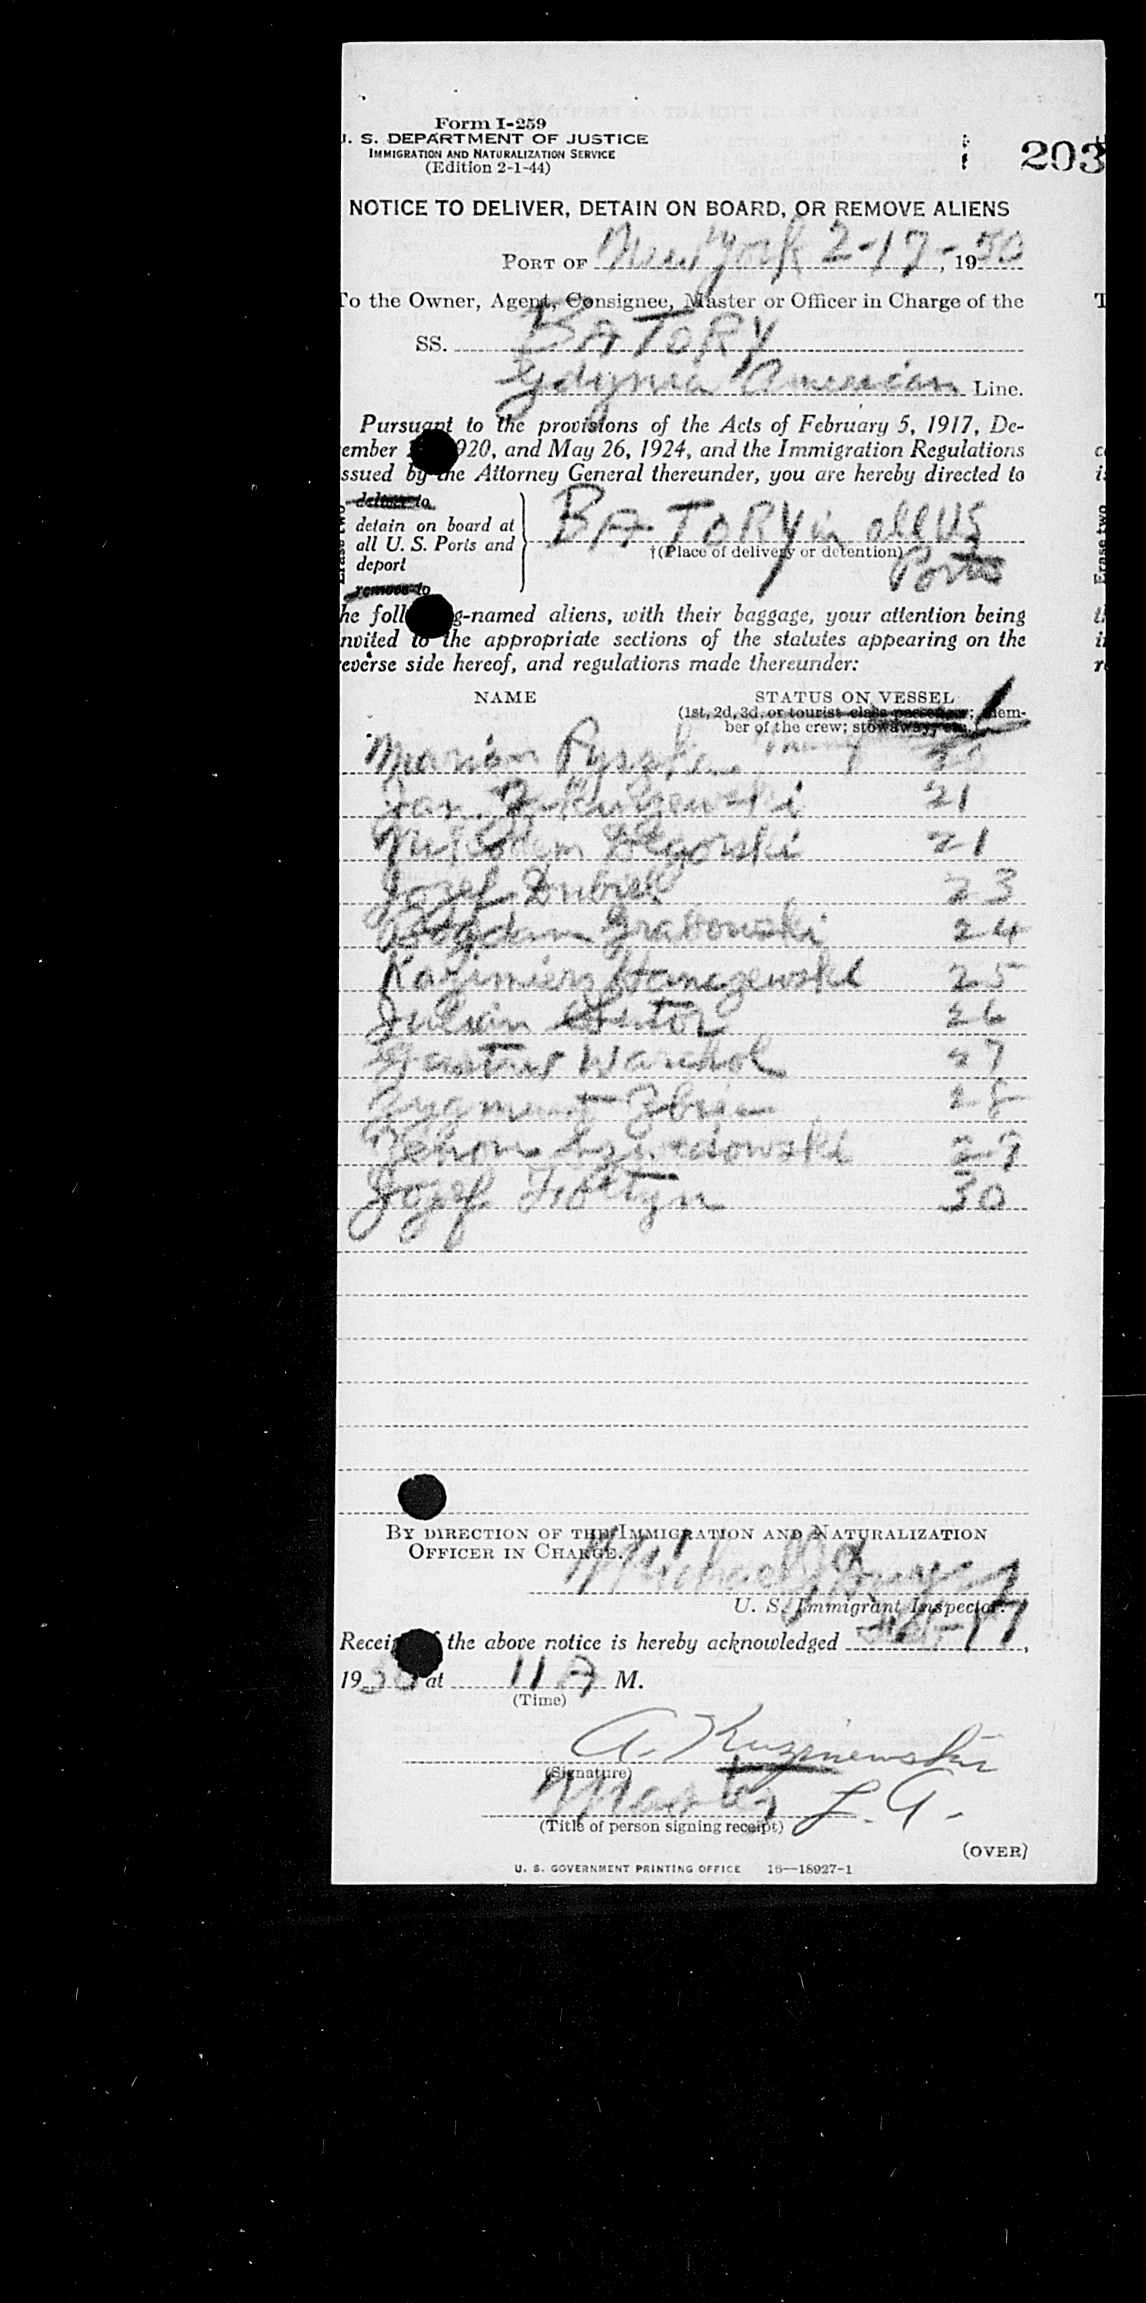 Form I-259
U. S. DEPARTMENT OF JUSTICE
IMMIGRATION AND NATURALIZATION SERVICE
(Edition 2-1-44)
203
NOTICE TO DELIVER, DETAIN ON BOARD, OR REMOVE ALIENS
PORT OF New York 2-17-, 1950
To the Owner, Agent, Consignee, Master or Officer in Charge of the
SS. BATORY
Gdynia American Line.
Pursuant to the provisions of the Acts of February 5, 1917, De-
ember 920, and May 26, 1924, and the Immigration Regulations
ssued by the Attorney General thereunder, you are hereby directed to
deliver to
detain on board at
all U. S. Ports and
deport
remove to
Erase two
BATORY in all US
†(Place of delivery or detention)
Ports
he foll g-named aliens, with their baggage, your attention being
nvited to the appropriate sections of the statutes appearing on the
everse side hereof, and regulations made thereunder:
NAME STATUS ON VESSEL
(1st, 2d, 3d, or tourist class passenger; mem-
ber of the crew; stowaway, etc.)
Marian
Jan 21
21
Jozef Dubiel 23
Bogdan Grabowski 24
Kazimierz 25
Julian 26
Warchol 27
Zygmunt 28
29
Jozef 30
BY DIRECTION OF THE IMMIGRATION AND NATURALIZATION
OFFICER IN CHARGE.
Michael J
U. S. Immigrant Inspector.
Receipt of the above notice is hereby acknowledged Feb-17,
1950 at 11 A M.
(Time)
A.
(Signature)
Master
(Title of person signing receipt)
(OVER)
U. S. GOVERNMENT PRINTING OFFICE 16—18927-1